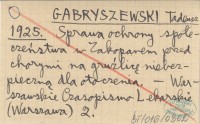 GABRYSZEWSKI Tadeusz
1925. Sprawa ochrony społe-
czeństwa w Zakopanem przed
chorymi na gruźlicę niebez-
pieczną dla otoczenia. — War-
szawskie Czasopismo Lekarskie
(Warszawa) 2.